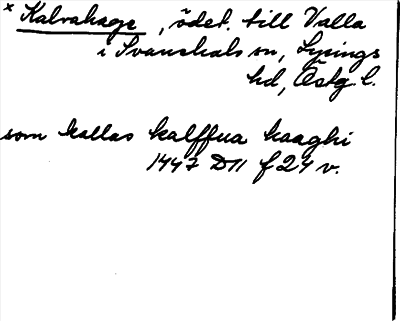 × Kalvahage, ödet. till Valla
i Svanshals sn, Lysings
hd, Östg. l.
som kallas kalffua haaghi
1447 D11 f 24 v.